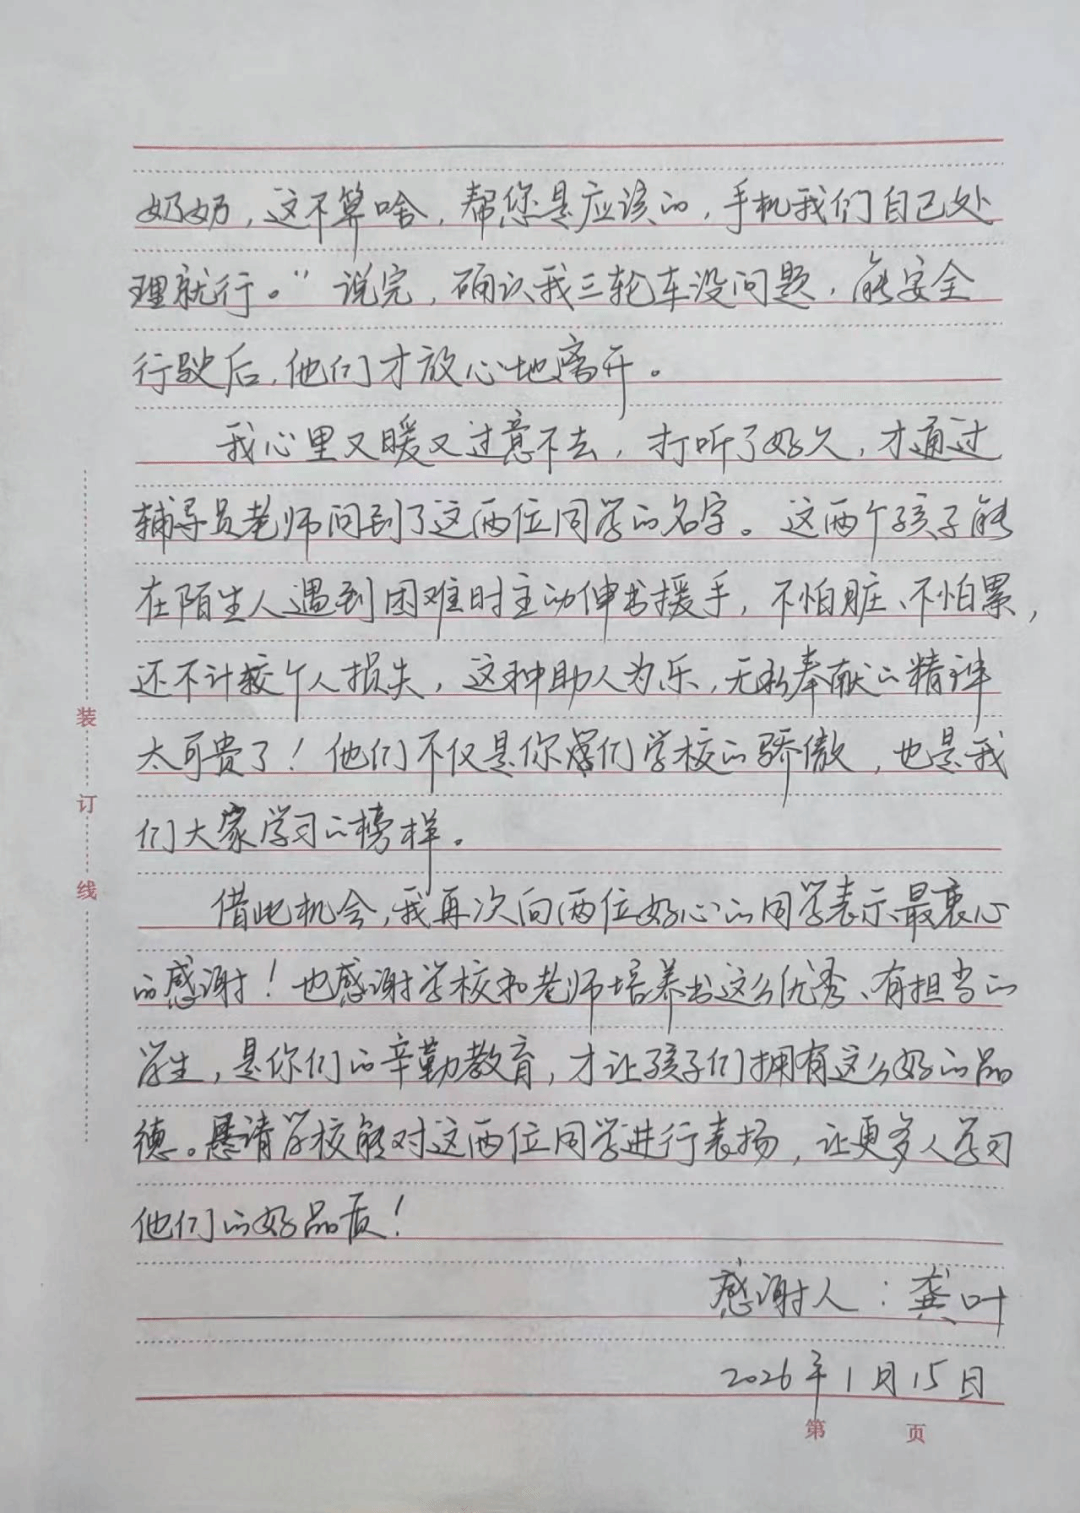 奶奶，这不算啥，帮您是应该的，手机我们自己处
理就行。”说完，确认我三轮车没问题，能安全
行驶后，他们才放心地离开。
我心里又暖又过意不去，打听了好久，才通过
辅导员老师问到了这两位同学的名字。这两个孩子能
在陌生人遇到困难时主动伸出援手，不怕脏、不怕累，
还不计较个人损失，这种助人为乐，无私奉献的精神
太可贵了！他们不仅是你们学校的骄傲，也是我
们大家学习的榜样。
借此机会，我再次向两位好心的同学表示最衷心
的感谢！也感谢学校和老师培养出这么优秀、有担当的
学生，是你们的辛勤教育，才让孩子们拥有这么好的品
德。恳请学校能对这两位同学进行表扬，让更多人学习
他们的好品质！
感谢人：龚叶
2026年1月15日
装
订
线
第 页